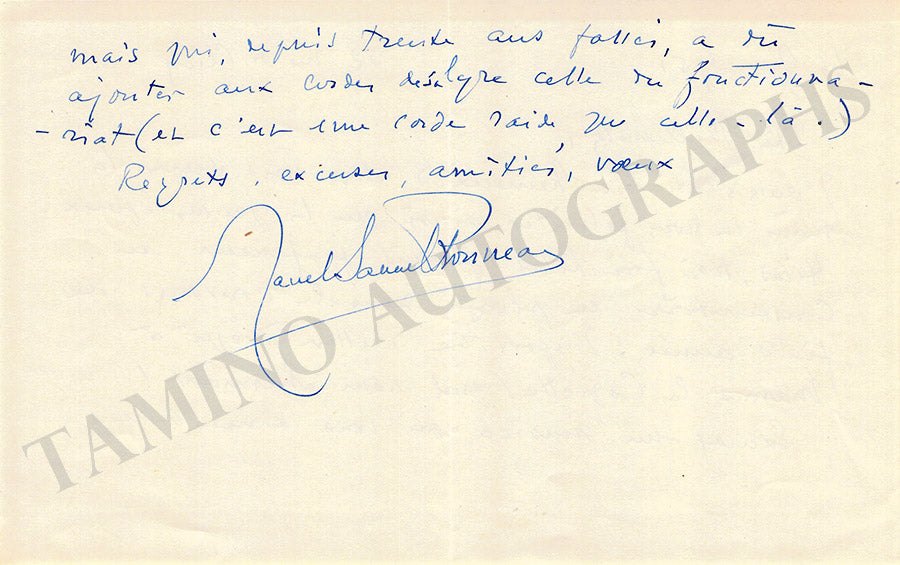 mais qui, depuis trente ans passés, a dû
ajouter aux cordes de sa lyre celle du fonctionna-
-riat (et c'est une corde raide que celle-là.)
Regrets, excuses, amitiés, vœux
Marcel Samuel Rousseau
TAMINO AUTOGRAPHS